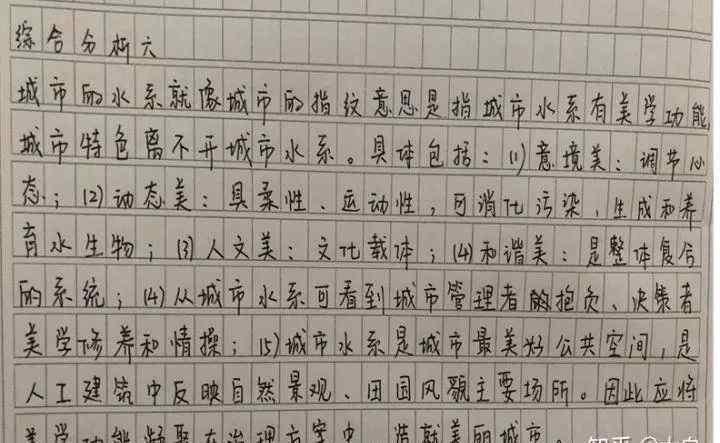 综合分析六
城市的水系就像城市的指纹意思是指城市水系有美学功能,
城市特色离不开城市水系。具体包括：(1)意境美：调节心
态；(2)动态美：具柔性、运动性，可消化污染、生成和养
育水生物；(3)人文美：文化载体；(4)和谐美：是整体复合
的系统；(4)从城市水系可看到城市管理者的抱负、决策者
美学修养和情操；(5)城市水系是城市最美好公共空间，是
人工建筑中反映自然景观、田园风貌主要场所。因此应将
美学功能凝聚在治理方案中，造就美丽城市。
知乎 @大白